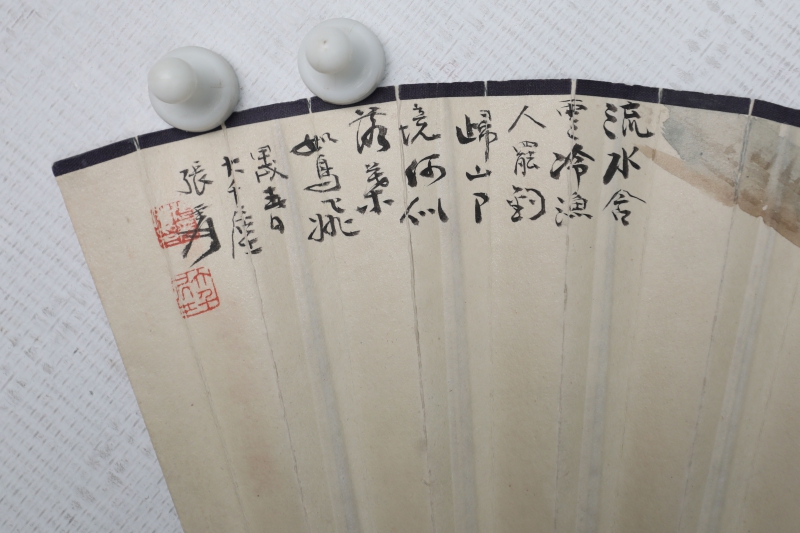 流水含
雲冷漁
人罷釣
歸山中
境何似
落葉
如鳥飛
春日
大千
張爰